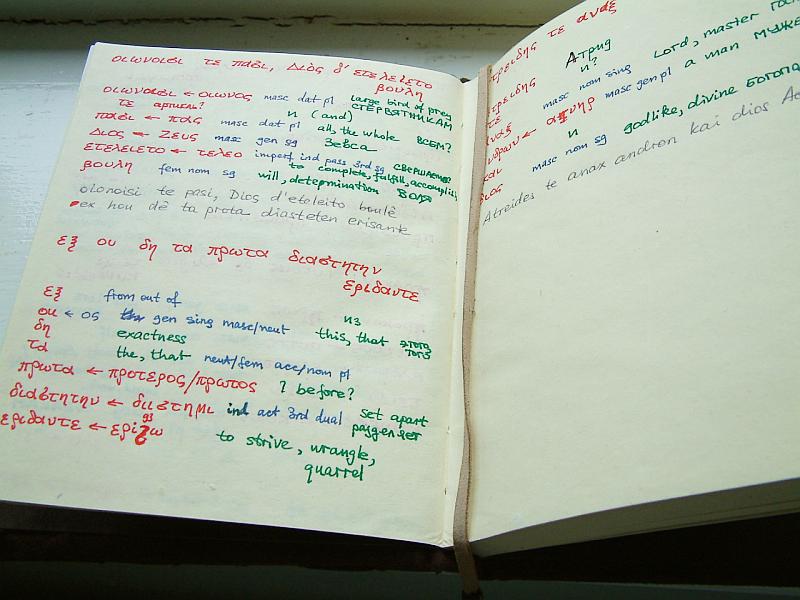 οιωνοισι τε πασι, Διὸς δ' ετελειετο
βουλη
οιωνοισι ← οιωνος masc dat pl large bird of prey
τε артикль? n (and) СТЕРВЯТНИКАМ
πασι ← πας masc dat pl all, the whole ВСЕМ?
Διος ← Ζευς masc gen sg Зевса
ετελειετο ← τελεο imperf ind pass 3rd sg СВЕРШАЕМОЕ
to complete, fulfill, accomplish
βουλη fem nom sg will, determination ВОЛЯ
oionoisi te pasi, Dios d'eteleito boulê
ex hou dê ta prota diasteten erisante
εξ ου δη τα πρωτα διαστητην
ερισαντε
εξ from out of из
ου ← ος gen sing masc/neut this, that этого
δη exactness того
τα the, that neut/fem acc/nom pl
πρωτα ← προτερος/πρωτος ? before?
διαστητην ← διιστημι ind act 3rd dual set apart
ερισαντε ← εριζω
to strive, wrangle,
quarrel
τρειδης τε αναξ
τρειδης Атрид
τε n?
ναξ masc nom sing Lord, master
νδρων ← ανηρ masc gen pl a man МУЖЕ
και n
διος masc nom sg godlike, divine
Atreides te anax andron kai dios